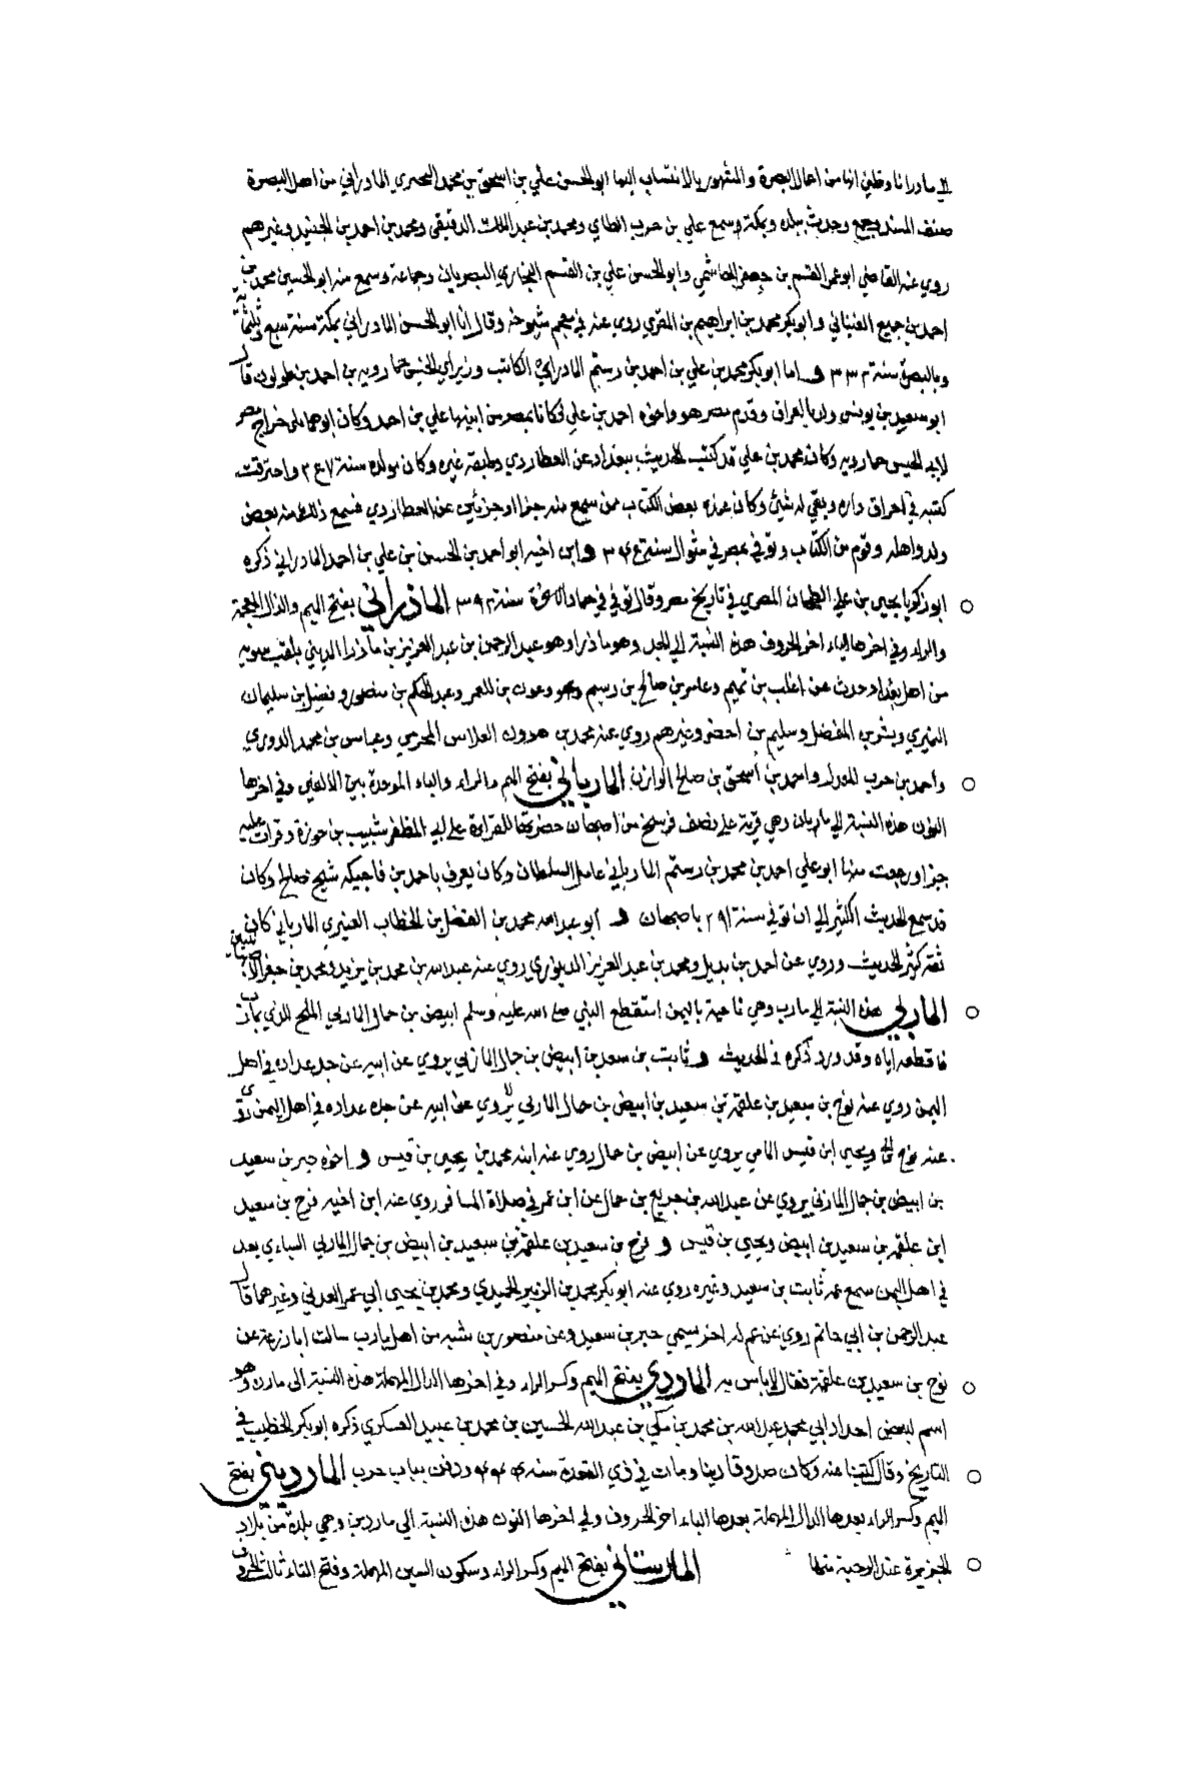 الي مادرانا وظني انها من اعمال البصرة والمشهور بالانتساب اليها ابو الحسن علي بن اسحق بن محمد البحري المادراني من اهل البصرة
صنف المسند وجمع وحدث ببلده وبمكة وسمع علي بن حرب الطاي ومحمد بن عبد الملك الدقيقي ومحمد بن احمد بن الجنيد وغيرهم
روي عنه القاضي ابو عمر القسم بن جعفر الهاشمي وابو الحسن علي بن القسم النجاري البصريان وجماعة وسمع منه ابو الحسين محمد بن
احمد بن جميع الغساني وابو بكر محمد بن ابراهيم بن المقري روي عنه في معجم شيوخه وقال انا ابو الحسن المادراني بمكة سنة سبع وثلثمائة
وبالبصرة سنة ٣٣٠ و اما ابو بكر محمد بن علي بن احمد بن رستم المادراي الكاتب وزير ابي الجيش خمارويه بن احمد بن طولون قال
ابو سعيد بن يونس ولد بالعراق وقدم مصر هو واخوه احمد بن علي وكانا بمصر مع ابيهما علي بن احمد وكان ابوهما يلي خراج مصر
لابي الجيش خمارويه وكان محمد بن علي قد كتب الحديث ببغداد عن العطاردي وطبقة غيره وكان مولده سنة ٢٥٧ واحترقت
كتبه في احراق داره وبقي له شيء وكان عند بعض الكتاب ممن سمع منه جزا او جزئين عن العطاردي فسمع ذلك منه بعض
ولده واهله وقوم من الكتاب وتوفي بمصر في شوال سنة ٣٤٥ و ابن اخيه ابو احمد بن الحسن بن علي بن احمد المادراني ذكره
ابو زكريا يحيي بن علي الطحان المصري في تاريخ مصر وقال توفي في جماد الاخرة سنة ٣٩٣ الماذراني بفتح الميم والذال المعجمة
والراء وفي اخرها الياء اخر الحروف هذه النسبة الي الجد وهو ماذرا وهو عبد الرحمن بن عبد العزيز بن ماذرا المديني يلقب
من اهل بغداد حدث عن اغلب بن تميم وعامر بن صالح بن رستم وعون بن المعمر وعبد الحكم بن منصور وفضيل بن سليمان
النميري وبشر بن المفضل وسليم بن اخضر وغيرهم روي عنه محمد بن هرون الفلاس المخرمي وعباس بن محمد الدوري
واحمد بن حرب المعدل واحمد بن اسحق بن صالح الوزان المارباني بفتح الميم والراء والباء الموحدة بين الالفين وفي اخرها
النون هذه النسبة الي ماربان وهي قرية علي نصف فرسخ من اصبهان حضرتها للقراءة علي ابي المظفر شبيب بن حوزة وقرات عليه
جزا ورجعت منها ابو علي احمد بن محمد بن رستم المارباني عامل السلطان وكان يعرف باحمد بن فاجيكه شيخ صالح وكان
قد سمع الحديث الكثير الي ان توفي سنة ٢٩١ باصبهان و ابو عبد الله محمد بن الفضل بن الخطاب العنبري المارباني كان
ثقة كثير الحديث وروي عن احمد بن بديل ومحمد بن عبد العزيز الدينوري روي عنه عبد الله بن محمد بن يزيد ومحمد بن جعفر الاصبهانيين
الماربي هذه النسبة الي مارب وهي ناحية باليمن استقطع النبي صلي الله عليه وسلم ابيض بن حمال الماربي الملح الذي بمارب
فاقطعه اياه وقد ورد ذكره في الحديث و ثابت بن سعيد بن ابيض بن حمال الماربي يروي عن ابيه عن جده عداده في اهل
اليمن روي عنه نوح بن سعيد بن علقمة بن سعيد بن ابيض بن حمال الماربي يروي عن ابيه عن جده عداده في اهل اليمن روي
عنه نوح ويحيي ابن قيس المامي يروي عن ابيض بن حمال روي عنه ابنه محمد بن يحيي بن قيس و اخوه جبر بن سعيد
بن ابيض بن حمال المازني يروي عن عبد الله بن جريج بن حمال عن ابن عمر في صلاة المسافر روي عنه ابن اخيه فرج بن سعيد
ابن علقمة بن سعيد بن ابيض ويحيي بن قيس و فرج بن سعيد بن علقمة بن سعيد بن ابيض بن حمال الماربي السباءي يعد
في اهل اليمن سمع عمه ثابت بن سعيد وغيره روي عنه ابو بكر محمد بن الزبير الحميدي ومحمد بن يحيي ابي عمر العدني وغيرهما قال
عبد الرحمن بن ابي حاتم روي عن عم له اخر يسمي جبر بن سعيد وعن منصور بن شبه من اهل مارب سالت ابا زرعة عن
نوح بن سعيد بن علقمة فقال لاباس به الماردي بفتح الميم وكسر الراء وفي اخرها الدال المهملة هذه النسبة الي مارد وهو
اسم لبعض اجداد ابي محمد عبد الله بن محمد بن مكي بن عبد الله الحسين بن محمد بن عبيد العسكري ذكره ابو بكر الخطيب في
التاريخ وقال كتبنا عنه وكان صدوقا دينا ومات في ذي القعدة سنة ٤٣٣ ودفن بباب حرب المارديني بفتح
الميم وكسر الراء بعدها الدال المهملة بعدها الياء اخر الحروف وفي اخرها النون هذه النسبة الي ماردين وهي بلدة من بلاد
الجزيرة عند الرحبة منها المارستاني بفتح الميم وكسر الراء وسكون السين المهملة وفتح التاء ثالث الحروف